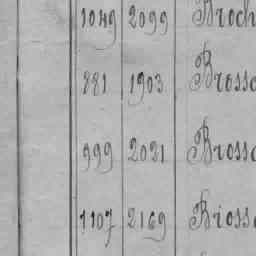 1049 2099 Broch
881 1903 Bross
999 2021 Bross
1107 2169 Bross